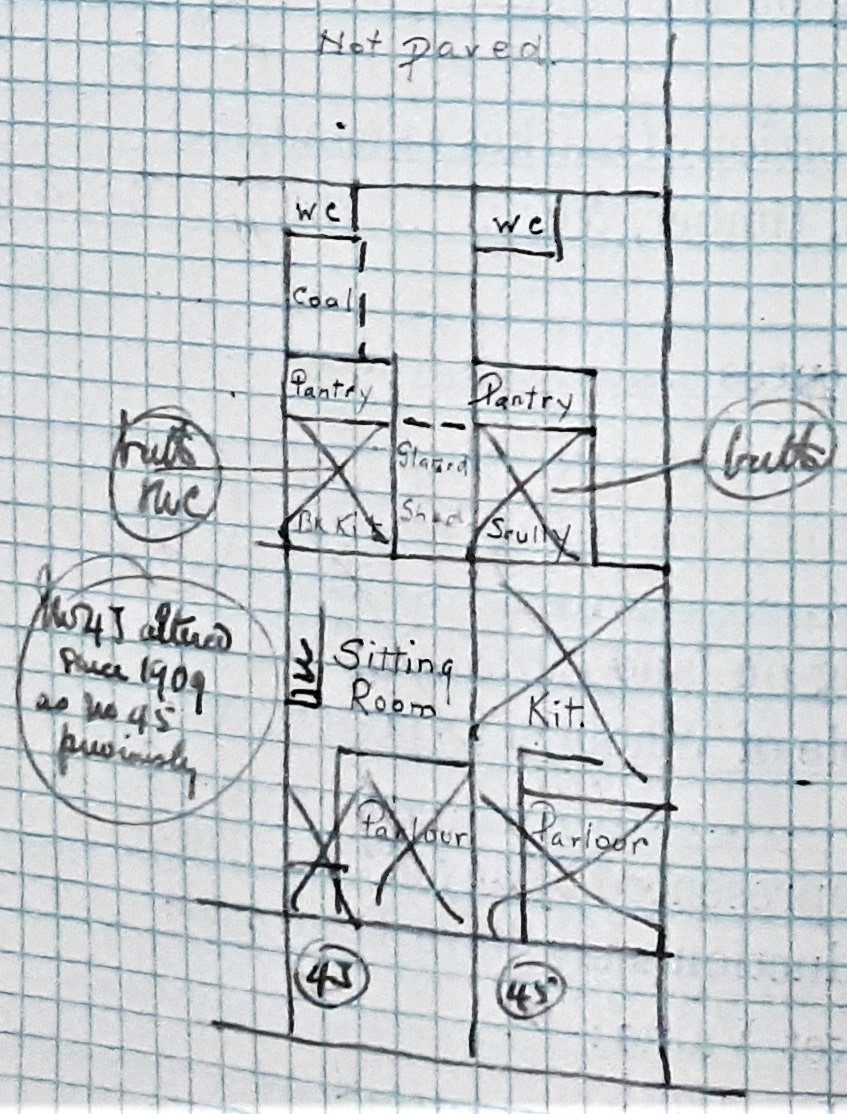 Not paved.
wc
wc
Coal
Pantry
Pantry
Glazed
Shed
Bk Kit
Scully
No 43 altered
since 1909
as no 45
previously
Sitting
Room
Kit.
Parlour
Parlour
43
45